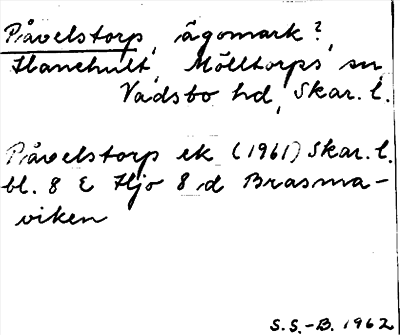 Påvelstorp, ägomark?,
Hanehult, Mölltorps sn
Vadsbo hd, Skar. l.
Påvelstorp ek (1961) Skar. l.
bl. 8 E Hjo 8 d Brasma-
viken
S.S.-B. 1962